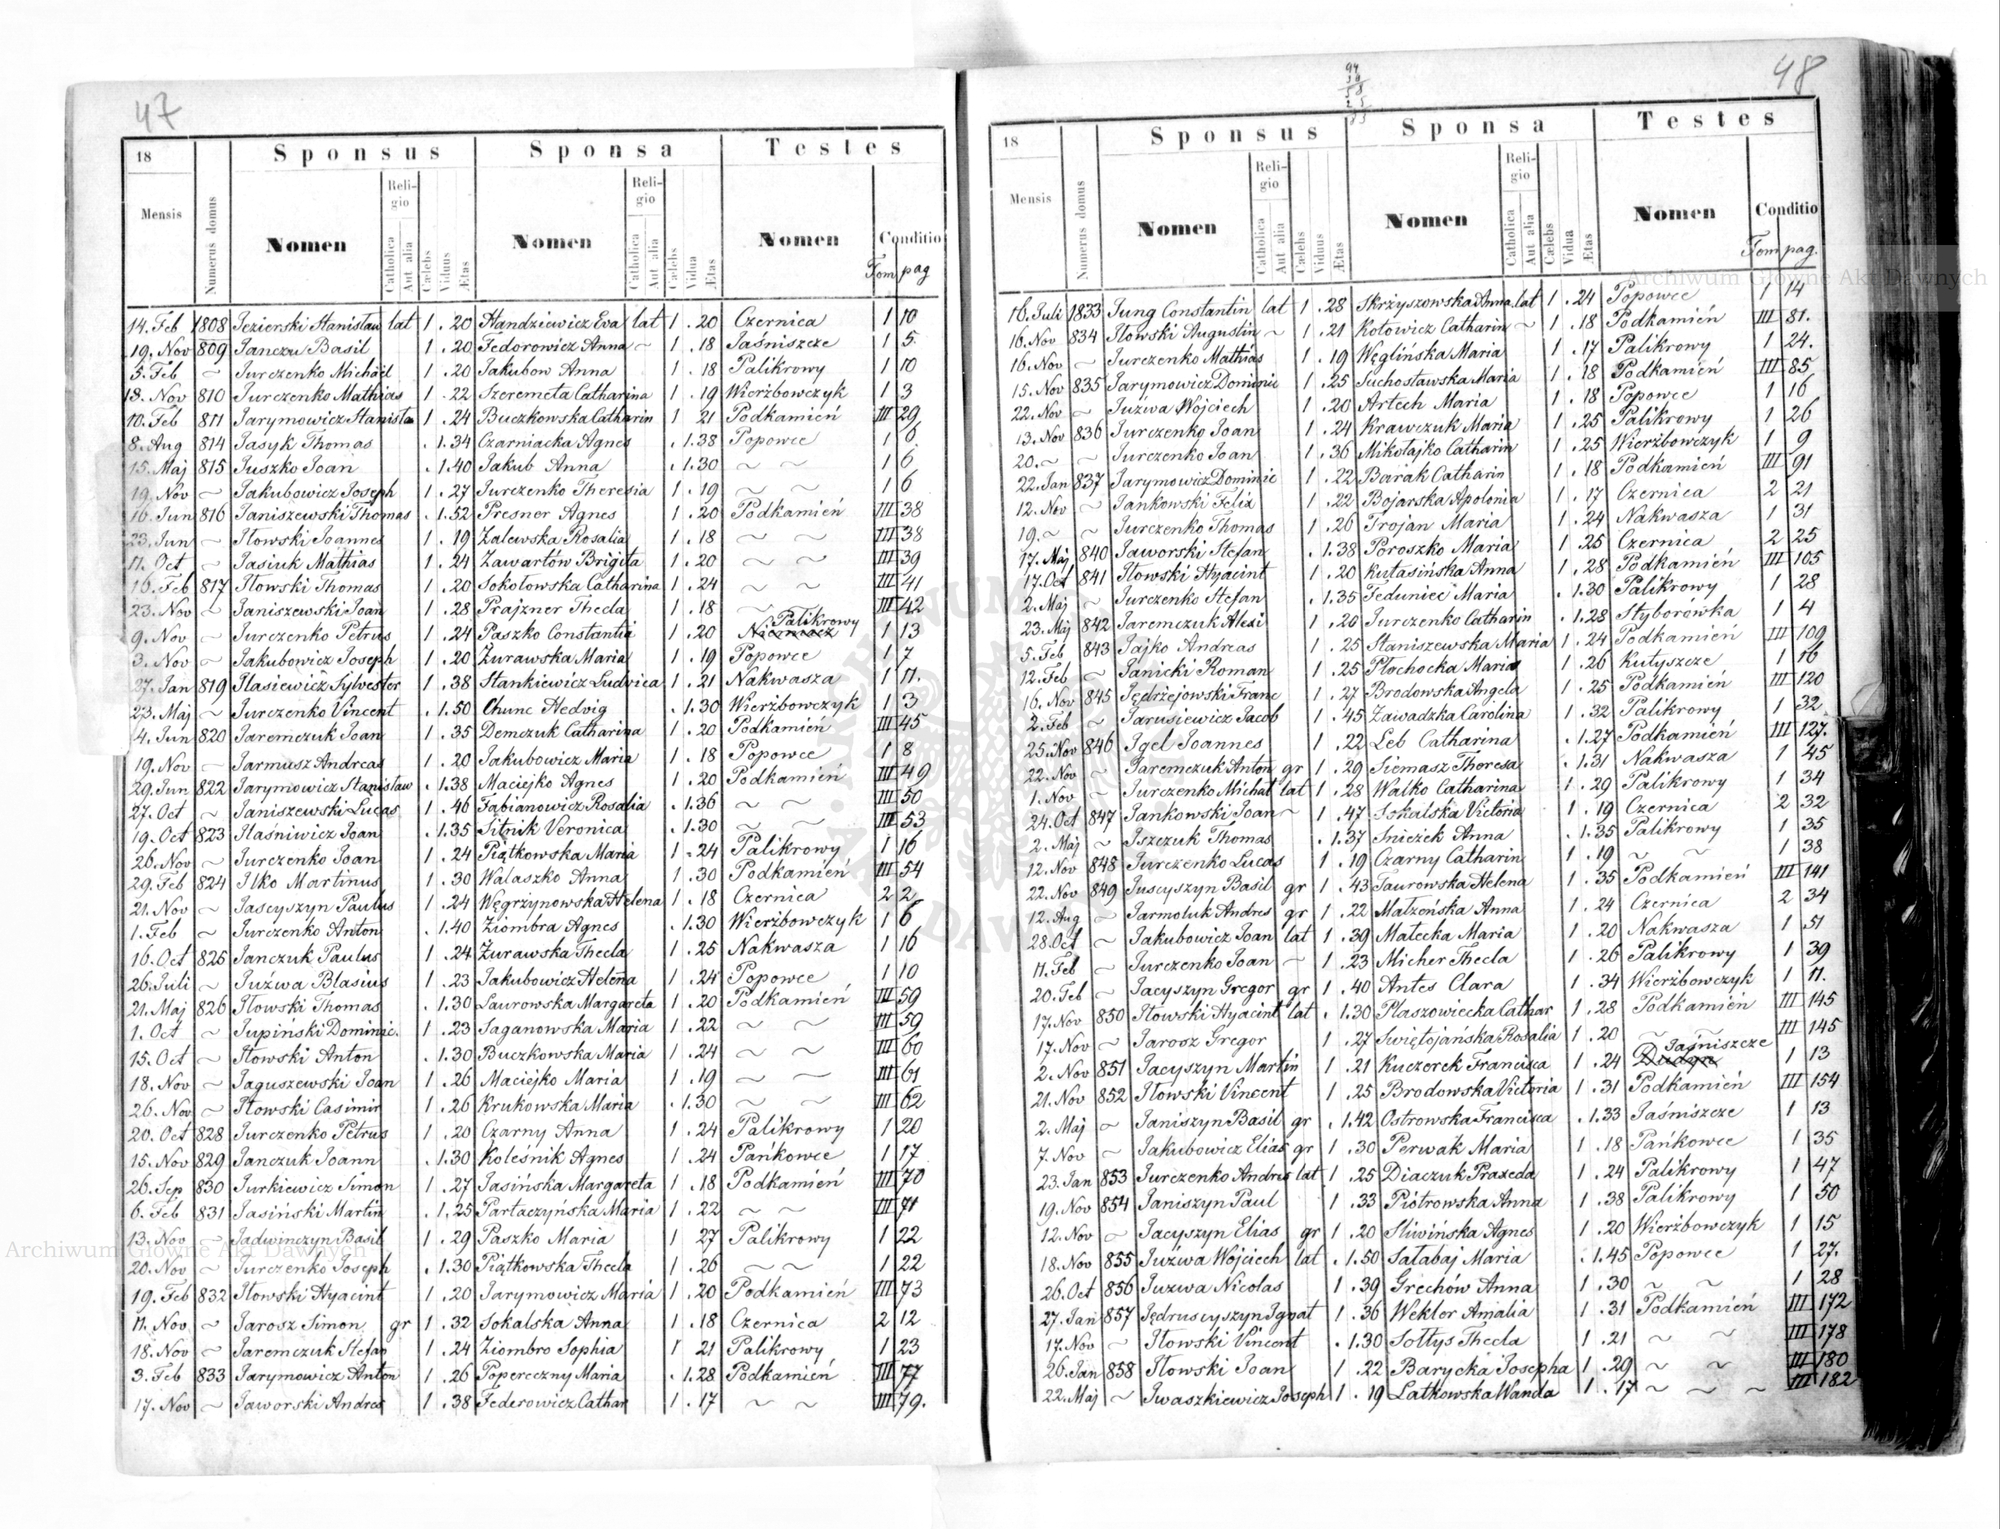 47
18
Mensis
Numerus domus
Sponsus
Nomen
Religio
Catholica
Aut alia
Cælebs
Viduus
Ætas
Sponsa
Nomen
Religio
Catholica
Aut alia
Cælebs
Vidua
Ætas
Testes
Nomen
Conditio
Tom pag
14. Feb 1808 Jezierski Stanisław lat 1 . 20 Handziewicz Eva lat 1 . 20 Czernica 1 10
19. Nov 809 Janczu Basil 1 . 20 Fedorowicz Anna ~ 1 . 18 Jaśniszcze 1 5
5. Feb ~ Jurczenko Michael 1 . 20 Jakubow Anna 1 . 18 Palikrowy 1 10
18. Nov 810 Jurczenko Mathias 1 . 22 Szeremeta Catharina 1 . 19 Wierzbowczyk 1 3
10. Feb 811 Jarymowicz Stanisla 1 . 24 Buczkowska Catharin 1 21 Podkamień III 29
8. Aug 814 Jasyk Thomas . 1. 34 Czarniacka Agnes . 1. 38 Popowce 1 6
15. Maj 815 Juszko Joan . 1. 40 Jakub Anna . 1. 30 ~ ~ 1 6
19. Nov ~ Jakubowicz Joseph 1 . 27 Jurczenko Theresia 1 . 19 ~ ~ 1 6
16. Jun 816 Janiszewski Thomas . 1. 52 Presner Agnes 1 . 20 Podkamień III 38
23. Jun ~ Iłowski Joannes 1 . 19 Zalewska Rosalia 1 . 18 ~ ~ III 38
11. Oct ~ Jasiuk Mathias 1 . 24 Zawartów Brigita 1 . 20 ~ ~ III 39
16. Feb 817 Iłowski Thomas 1 . 20 Sokołowska Catharina 1 . 24 ~ ~ III 41
23. Nov ~ Janiszewski Joan 1 . 28 Prajzner Thecla 1 . 18 ~ III 42
9. Nov ~ Jurczenko Petrus 1 . 24 Paszko Constantia 1 . 20 Palikrowy 1 13
3. Nov ~ Jakubowicz Joseph 1 . 20 Żurawska Maria 1 . 19 Popowce 1 7
27. Jan 819 Ilasiewicz Sylvester 1 . 38 Stankiewicz Ludvica 1 . 21 Nakwasza 1 11.
23. Maj ~ Jurczenko Vincent . 1. 50 Chunc Hedvig . 1. 30 Wierzbowczyk 1 3
4. Jun 820 Jaremczuk Joan 1 . 35 Demczuk Catharina 1 . 20 Podkamień III 45
19. Nov ~ Jarmusz Andreas 1 . 20 Jakubowicz Maria 1 . 18 Popowce 1 8
29. Jun 822 Jarymowicz Stanislaw . 1. 38 Maciejko Agnes 1 . 20 Podkamień III 49
27. Oct ~ Janiszewski Lucas 1 . 46 Fabianowicz Rosalia . 1. 36 ~ ~ III 50
19. Oct 823 Ilaśniwicz Joan . 1. 35 Sitnik Veronica . 1. 30 ~ ~ III 53
26. Nov ~ Jurczenko Joan 1 . 24 Piątkowska Maria 1 . 24 Palikrowy 1 16
29. Feb 824 Ilko Martinus 1 . 30 Walaszko Anna 1 . 30 Podkamień III 54
21. Nov ~ Jascyszyn Paulus 1 . 24 Węgrzynowska Helena 1 . 18 Czernica 2 2
1. Feb ~ Jurczenko Anton . 1. 40 Ziombra Agnes . 1. 30 Wierzbowczyk 1 6
16. Oct 825 Janczuk Paulus 1 . 24 Żurawska Thecla 1 . 25 Nakwasza 1 16
26. Juli ~ Juźwa Blasius 1 . 23 Jakubowicz Helena 1 . 24 Popowce 1 10
21. Maj 826 Iłowski Thomas . 1. 30 Laurowska Margareta 1 . 20 Podkamień III 59
1. Oct ~ Jupiński Dominic. 1 . 23 Saganowska Maria 1 . 22 ~ ~ III 59
15. Oct ~ Iłowski Anton . 1. 30 Buczkowska Maria 1 . 24 ~ ~ III 60
18. Nov ~ Jaguszewski Joan 1 . 26 Maciejko Maria 1 . 19 ~ ~ III 61
26. Nov ~ Iłowski Casimir 1 . 26 Krukowska Maria . 1. 30 ~ ~ III 62
20. Oct 828 Jurczenko Petrus 1 . 20 Czarny Anna 1 . 24 Palikrowy 1 20
15. Nov 829 Janczuk Joann . 1. 30 Koleśnik Agnes 1 . 24 Pańkowce 1 17
26. Sep 830 Jurkiewicz Simon 1 . 27 Jasińska Margareta 1 . 18 Podkamień III 70
6. Feb 831 Jasiński Martin . 1. 25 Partaczyńska Maria 1 . 22 ~ ~ III 71
13. Nov ~ Jadwinczyn Basil 1 . 29 Paszko Maria 1 27 Palikrowy 1 22
20. Nov ~ Jurczenko Joseph . 1. 30 Piątkowska Thecla 1 . 26 ~ ~ 1 22
19. Feb 832 Iłowski Hyacint 1 . 20 Jarymowicz Maria 1 . 20 Podkamień III 73
11. Nov ~ Jarosz Simon gr 1 . 32 Sokalska Anna 1 . 18 Czernica 2 12
18. Nov ~ Jaremczuk Stefan 1 . 24 Ziombro Sophia 1 21 Palikrowy 1 23
3. Feb 833 Jarymowicz Anton 1 . 26 Popereczny Maria . 1. 28 Podkamień III 77
17. Nov ~ Jaworski Andres 1 . 38 Federowicz Cathar 1 . 17 ~ ~ III 79.
48
18
Mensis
Numerus domus
Sponsus
Nomen
Religio
Catholica
Aut alia
Cælebs
Viduus
Ætas
Sponsa
Nomen
Religio
Catholica
Aut alia
Cælebs
Vidua
Ætas
Testes
Nomen
Conditio
Tom pag.
16. Juli 1833 Jung Constantin lat 1 . 28 Skrzyszowska Anna lat 1 . 24 Popowce 1 14
16. Nov 834 Iłowski Augustin ~ 1 . 21 Kotowicz Catharin ~ 1 . 18 Podkamień III 81.
16. Nov ~ Jurczenko Mathias 1 . 19 Węglińska Maria 1 . 17 Palikrowy 1 24.
15. Nov 835 Jarymowicz Dominic 1 . 25 Suchosławska Maria 1 . 18 Podkamień III 85
22. Nov ~ Juźwa Wojciech 1 . 20 Artech Maria 1 . 18 Popowce 1 16
13. Nov 836 Jurczenko Joan 1 . 24 Krawczuk Maria 1 . 25 Palikrowy 1 26
20. ~ ~ Jurczenko Joan 1 . 36 Mikołajko Catharin 1 . 25 Wierzbowczyk 1 9
22. Jan 837 Jarymowicz Dominic 1 . 22 Barak Catharin 1 . 18 Podkamień III 91
12. Nov ~ Jankowski Felix 1 . 22 Bojarska Apolonia 1 . 17 Czernica 2 21
19. ~ ~ Jurczenko Thomas 1 . 26 Trojan Maria 1 . 24 Nakwasza 1 31
17. Maj 840 Jaworski Stefan . 1. 38 Poroszko Maria 1 . 25 Czernica 2 25
17. Oct 841 Iłowski Hyacint 1 . 20 Kutasińska Anna 1 . 28 Podkamień III 105
2. Maj ~ Jurczenko Stefan . 1. 35 Feduniec Maria . 1. 30 Palikrowy 1 28
23. Maj 842 Jaremczuk Alexi 1 . 26 Jurczenko Catharin . 1. 28 Styborówka 1 4
5. Feb 843 Jajko Andreas 1 . 25 Staniszewska Maria 1 . 24 Podkamień III 109
12. Feb ~ Janicki Roman 1 . 25 Płochocka Maria 1 . 26 Kutyszcze 1 16
16. Nov 845 Jędrzejowski Franc 1 . 27 Brodowska Angela 1 . 25 Podkamień III 120
2. Feb ~ Jarusiewicz Jacob 1 . 45 Zawadzka Carolina 1 . 32 Palikrowy 1 32
25. Nov 846 Igel Joannes 1 . 22 Leb Catharina . 1. 27 Podkamień III 127.
22. Nov ~ Jaremczuk Anton gr 1 . 29 Siemasz Theresa . 1. 31 Nakwasza 1 45
1. Nov ~ Jurczenko Michał lat 1 . 28 Walko Catharina 1 . 29 Palikrowy 1 34
24. Oct 847 Jankowski Joan ~ 1 . 47 Sokalska Victoria 1 . 19 Czernica 2 32
2. Maj ~ Iszczuk Thomas . 1. 37 Snieżek Anna . 1. 35 Palikrowy 1 35
12. Nov 848 Jurczenko Lucas 1 . 19 Czarny Catharin 1 . 19 ~ ~ 1 38
22. Nov 849 Juscyszyn Basil gr 1 . 43 Taurowska Helena 1 . 35 Podkamień III 141
12. Aug ~ Jarmoluk Andres gr 1 . 22 Małzeńska Anna 1 . 24 Czernica 2 34
28. Oct ~ Jakubowicz Joan lat 1 . 39 Małecka Maria 1 . 20 Nakwasza 1 51
11. Feb ~ Jurczenko Joan ~ 1 . 23 Micher Thecla 1 . 26 Palikrowy 1 39
20. Feb ~ Jacyszyn Gregor gr 1 . 40 Antes Clara 1 . 34 Wierzbowczyk 1 11.
17. Nov 850 Iłowski Hyacint lat . 1. 30 Płaszowiecka Cathar 1 . 28 Podkamień III 145
17. Nov ~ Jarosz Gregor 1 . 27 Świętojańska Rosalia 1 . 20 ~ ~ III 145
2. Nov 851 Jacyszyn Martin 1 . 21 Kuczerek Francisca 1 . 24 Jaśniszcze 1 13
21. Nov 852 Iłowski Vincent 1 . 25 Brodowska Victoria 1 . 31 Podkamień III 154
2. Maj ~ Janiszyn Basil gr . 1. 42 Ostrowska Francisca . 1. 33 Jaśniszcze 1 13
7. Nov ~ Jakubowicz Elias gr 1 . 30 Perwak Maria 1 . 18 Pańkowce 1 35
23. Jan 853 Jurczenko Andres lat 1 . 25 Diaczuk Praxeda 1 . 24 Palikrowy 1 47
19. Nov 854 Janiszyn Paul 1 . 33 Piotrowska Anna 1 . 38 Palikrowy 1 50
12. Nov ~ Jacyszyn Elias gr 1 . 20 Sliwińska Agnes 1 . 20 Wierzbowczyk 1 15
18. Nov 855 Juźwa Wojciech lat . 1. 50 Sałabaj Maria . 1. 45 Popowce 1 27.
26. Oct 856 Juzwa Nicolas 1 . 39 Grechów Anna 1 . 30 ~ ~ 1 28
27. Jan 857 Jędruscyszyn Ignat 1 . 36 Wekler Amalia 1 . 31 Podkamień III 172
17. Nov ~ Iłowski Vincent . 1. 30 Sołtys Thecla 1 . 21 ~ ~ III 178
26. Jan 858 Iłowski Joan 1 . 22 Barycka Josepha 1 . 29 ~ ~ III 180
22. Maj ~ Iwaszkiewicz Joseph 1 . 19 Latkowska Wanda 1 . 17 ~ ~ ~ III 182
Archiwum Główne Akt Dawnych
Archiwum Główne Akt Dawnych